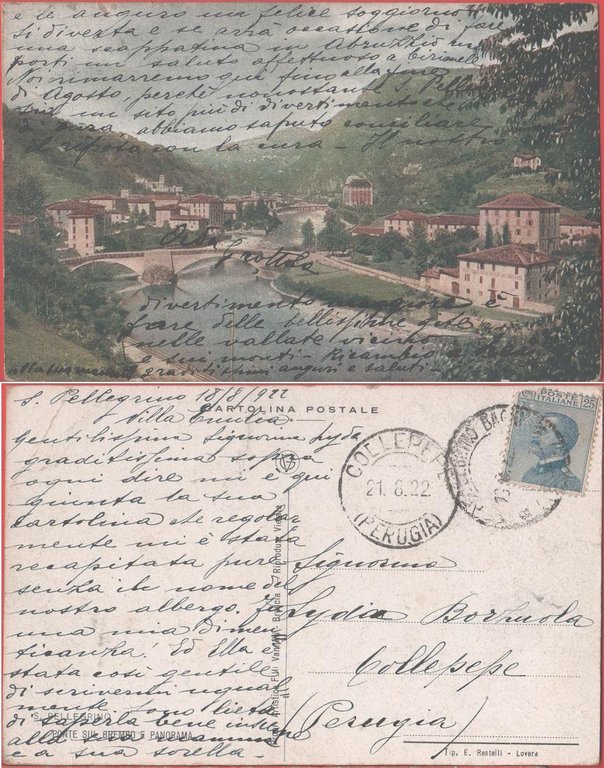 e le auguro un felice soggiorno.
Si diverta e se avrà occasione di fare
una scappatina in Abruzzo mi
porti un saluto affettuoso a
Noi rimarremo qui fino alla fine
di Agosto, perché nonostante S. Pell
sia un sito più di divertimento che
di cura abbiamo saputo conciliare
con la cura - Il nostro
divertimento maggiore è
fare delle bellissime gite
nelle vallate vicine
e sui monti - Ricambio
graditissimi auguri e saluti -
Grottola
S. Pellegrino 18/8/922
Villa Emilia
CARTOLINA POSTALE
Gentilissima Signorina Lydia
graditissima sopra
ogni dire mi è qui
giunta la sua
cartolina che regolar
mente mi è stata
recapitata pure
senza il nome del
nostro albergo. Fu
una mia dimen
ticanza! Ed Ella è
stata così gentile
di scrivermi ugual
mente. Sono lieta
di saperla bene insieme
alla sua mamma
e a sua sorella -
S. PELLEGRINO
PONTE SUL BREMBO E PANORAMA
F.lli Vannini Brescia - Riproduz. Vietata
POSTE ITALIANE
25
COLLEPEPE
21.8.22
(PERUGIA)
Signorina
Lydia
Collepepe
(Perugia)
Tip. E. Restelli - Lovere